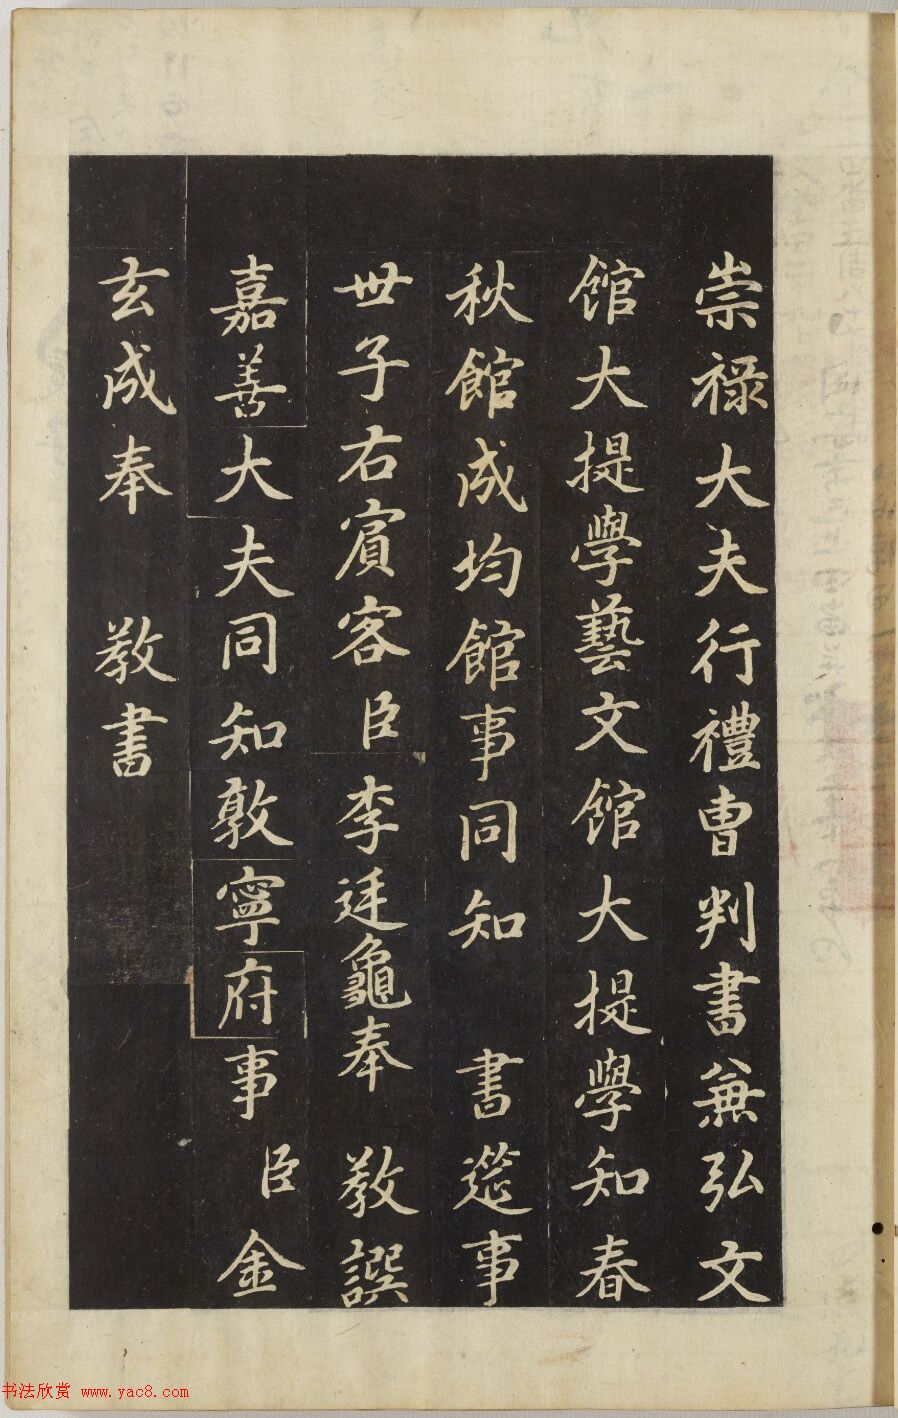 崇祿大夫行禮曹判書兼弘文
館大提學藝文館大提學知春
秋館成均館事同知　書筵事
世子右賓客臣李廷龜奉　教譔
嘉善大夫同知敦寧府事臣金
玄成奉　教書
书法欣赏 www.yac8.com